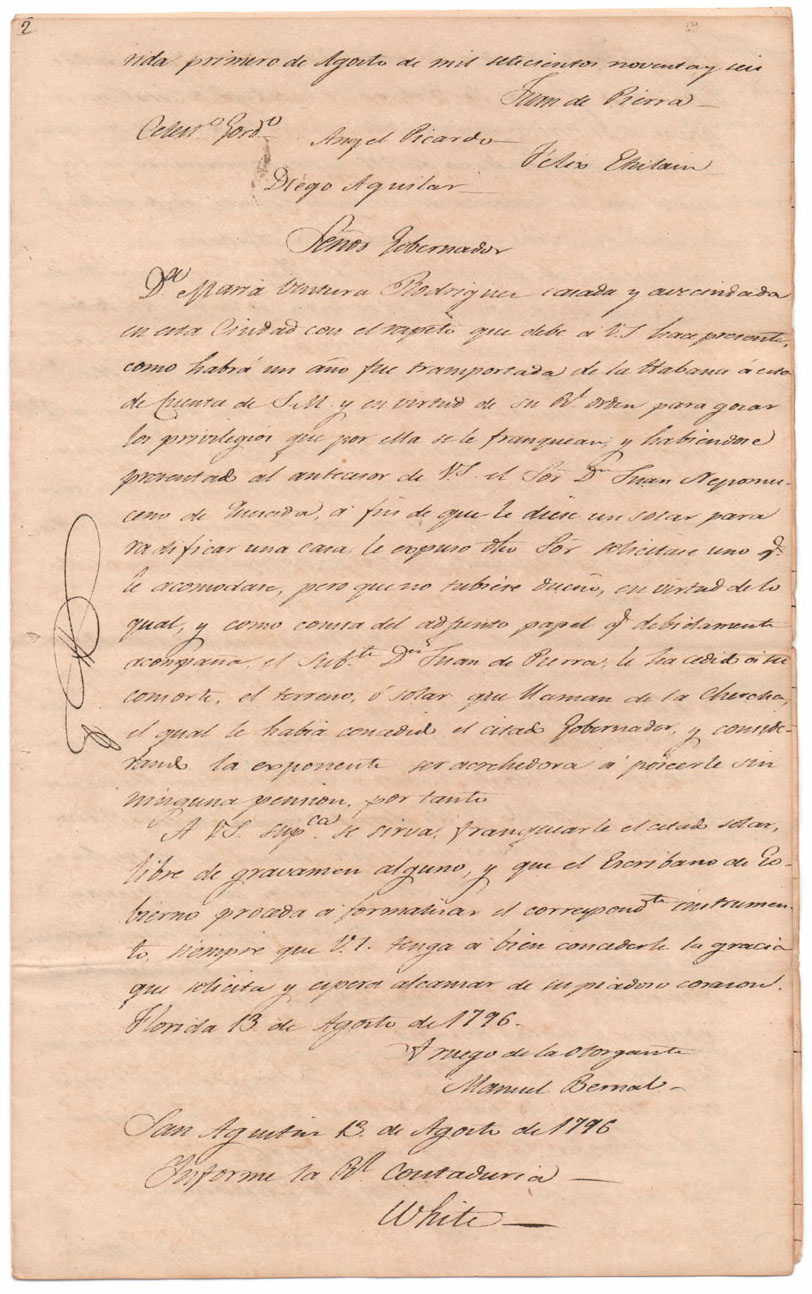 2
rida primero de Agosto de mil setecientos noventa y seis
Juan de Pierra
Angel Picardo
Felix
Diego Aguilar
Señor Gobernador
Dª Maria Ventura Rodriguez casada y avezindada
en esta Ciudad con el respeto que debe a VS hace presente,
como habrá un año fue transportada de la Habana á esta
de Cuenta de S.M. y en virtud de su Rl orden para gozar
los privilegios que por ella se le franquean, y habiendose
presentado al antecesor de VS. el Sor Dn Juan Nepomu-
ceno de Quesada, a fin de que le diese un solar para
radificar una casa, le expuso dho Sor solicitase uno q.
le acomodase, pero que no tubiese dueño, en virtud de lo
qual, y como consta del adjunto papel q. debidamente
acompaña, el Subte Dn Juan de Pierra, le ha cedido á su
consorte, el terreno, ó solar que llaman de la
el qual le habia concedido el citado Gobernador, y conside-
rando la exponente ser acrehedora a poseerle sin
ninguna pension, por tanto
A VS. supca se sirva, franquearle el citado solar,
libre de gravamen alguno, y que el Escribano de Go-
bierno proceda a formalizar el correspondte instrumen-
to, siempre que V.S. tenga á bien concederle la gracia
que solicita y espera alcanzar de su piadoso corazon.
Florida 13. de Agosto de 1796.
A ruego de la otorgante
Manuel Bernal
San Agustin 13. de Agosto de 1796
Informe la Rl Contaduria
White